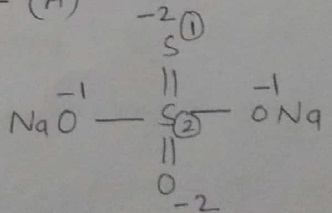 (A)
-2 ①
S
||
NaO -1 — S② — -1 ONa
||
O
-2